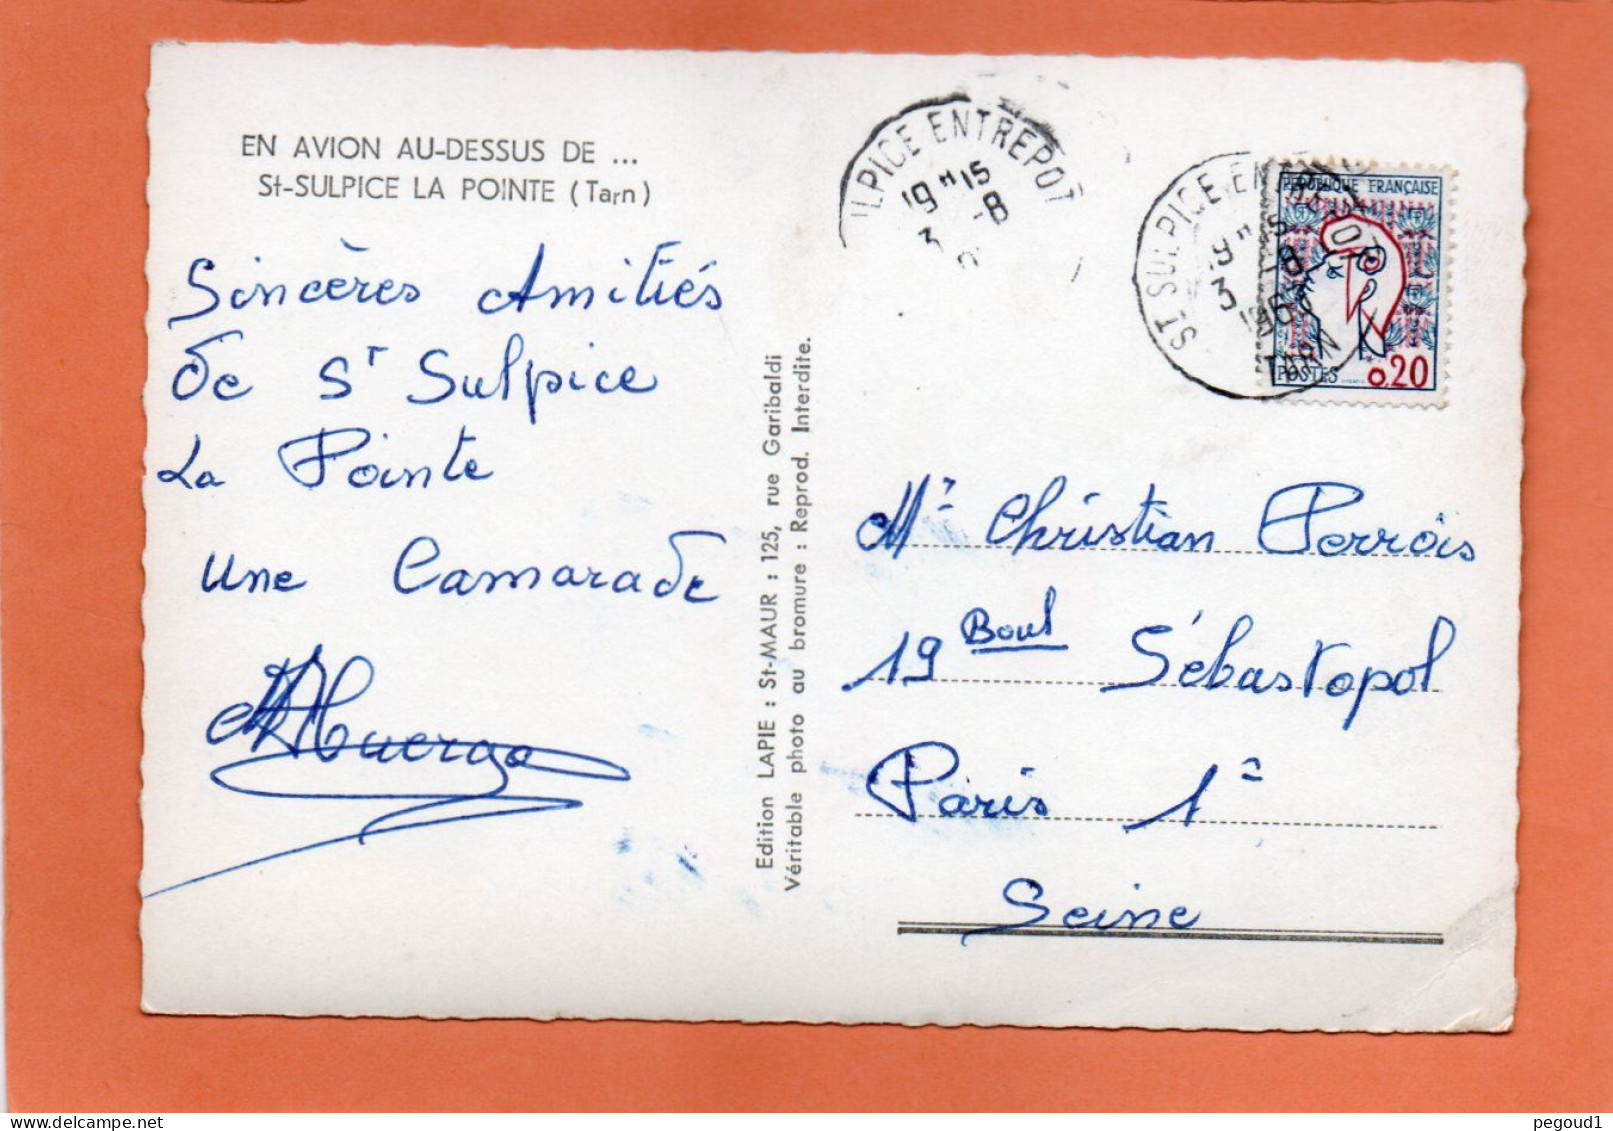 EN AVION AU-DESSUS DE ...
St-SULPICE LA POINTE (Tarn)
Sincères Amitiés
de St Sulpice
La Pointe
une Camarade
Edition LAPIE : St-MAUR : 125, rue Garibaldi
Véritable photo au bromure : Reprod. Interdite.
ULPICE ENTREPOT
19 H 15
3 -8
ST SULPICE ENTREPOT
19 H 15
3 -8
TARN
REPUBLIQUE FRANÇAISE
POSTES 0,20
Mr Christian Perrois
19 Boul Sébastopol
Paris 1e
Seine
pegoud1